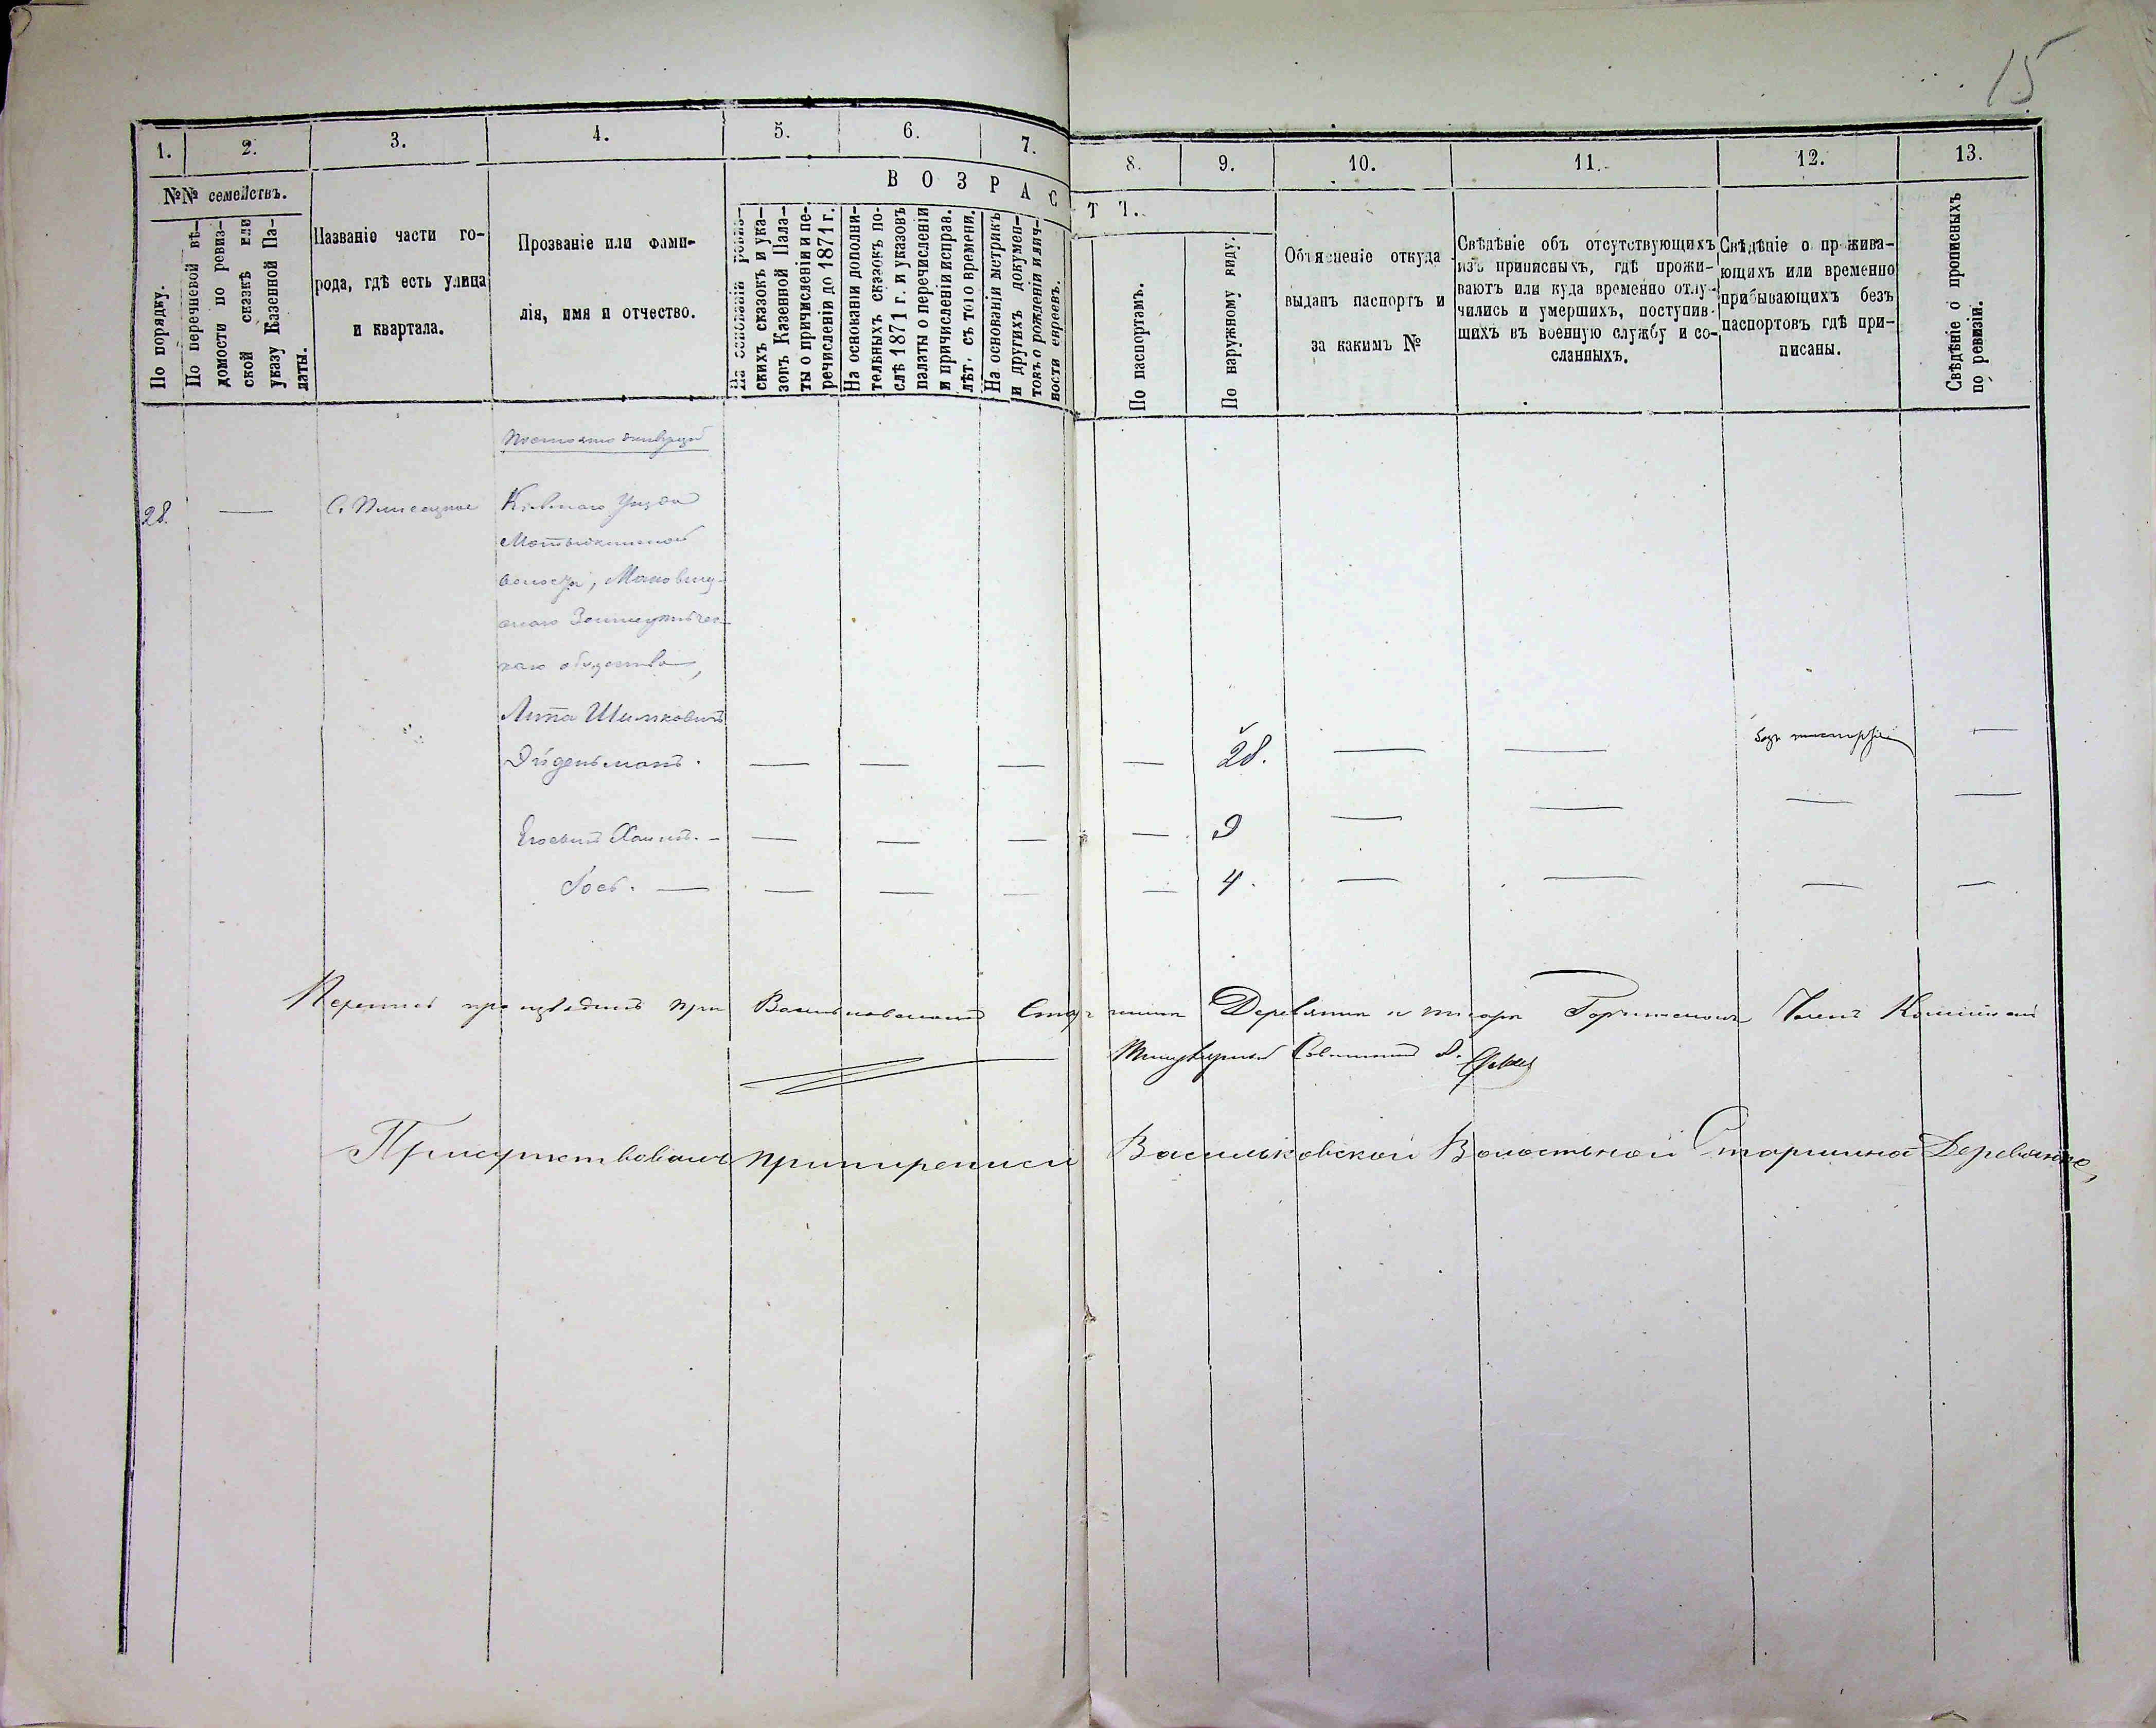 15
1. 2. 3. 4. 5. 6. 7. 8. 9. 10. 11. 12. 13.
№№ семействъ.
По порядку.
По перечневой вѣ-
домости по ревиз-
ской сказкѣ или
указу Казенной Па-
латы.
Названіе части го-
рода, гдѣ есть улица
и квартала.
Прозваніе или фами-
лія, имя и отчество.
ВОЗРАСТТ.
На основаніи ревиз-
скихъ сказокъ и ука-
зовъ Казенной Пала-
ты о причисленіи и пе-
речисленіи до 1871 г.
На основаніи дополни-
тельныхъ сказокъ по-
слѣ 1871 г. и указовъ
палаты о перечисленіи
и причисленіи исправ.
лѣт. съ того времени.
На основаніи метрикъ
и другихъ докумен-
товъ о рожденіи и лич-
ности евреевъ.
По паспортамъ.
По наружному виду.
Объясненіе откуда
выданъ паспортъ и
за какимъ №
Свѣдѣніе объ отсутствующихъ
изъ приписныхъ, гдѣ прожи-
ваютъ или куда временно отлу-
чились и умершихъ, поступив-
шихъ въ военную службу и со-
сланныхъ.
Свѣдѣніе о прожива-
ющихъ или временно
прибывающихъ безъ
паспортовъ гдѣ при-
писаны.
Свѣдѣніе о прописныхъ
по ревизіи.
28. — С. Плисецкое Кіевскаго Уѣзда
волости,
скаго Земледѣльчес-
каго общества,
Липа Шимковичъ
Эйдельманъ. — — — — 28. — — безъ —
Его сынъ Хаимъ. — — — — — 9 — — — —
Іось. — — — — — 4. — — — —
Перепись произведенъ при Старшина Деревянка и писарь Членъ Коммисіи
Титулярный Совѣтникъ
Присутствовалъ при переписи Васильковской Волостной Старшина Деревянко,